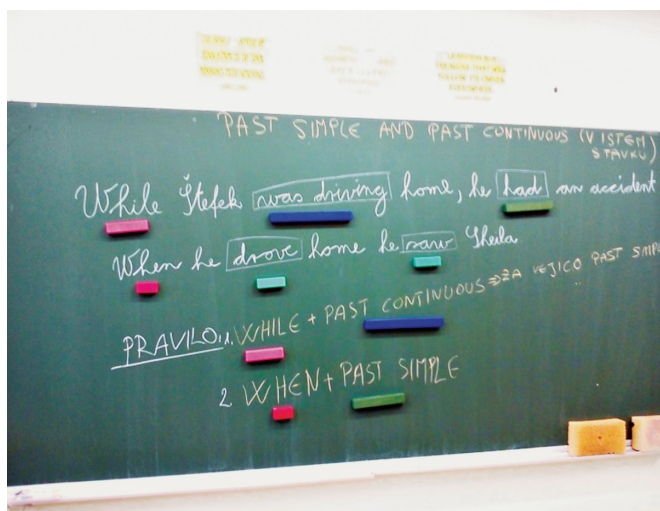 PAST SIMPLE AND PAST CONTINUOUS (V ISTEM
STAVKU)
While Štefek was driving home, he had an accident
When he drove home he saw Sheila
PRAVILO: 1. WHILE + PAST CONTINUOUS ⇒ ZA VEJICO PAST SIMPLE
2 WHEN + PAST SIMPLE